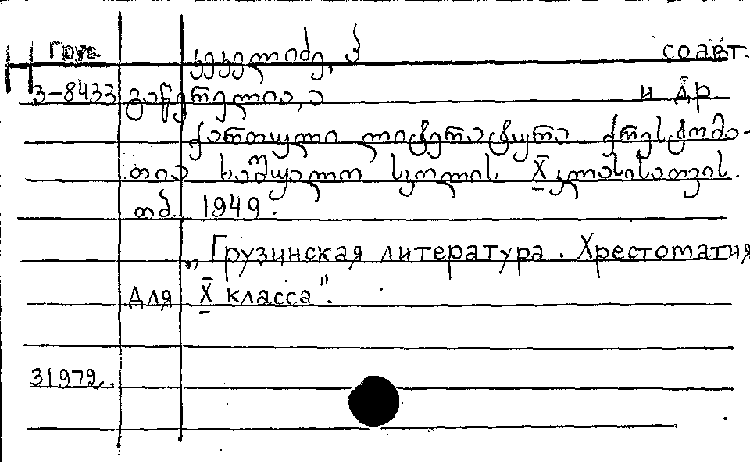 Груз კეკელიძე, კ соавт.
Н 3-8433 გაწერელია, ა и др
ქართული ლიტერატურა ქრესტომა-
თია საშუალო სკოლის X კლასისათვის.
თბ. 1949.
„Грузинская литература. Хрестоматия
для X класса".
31972.